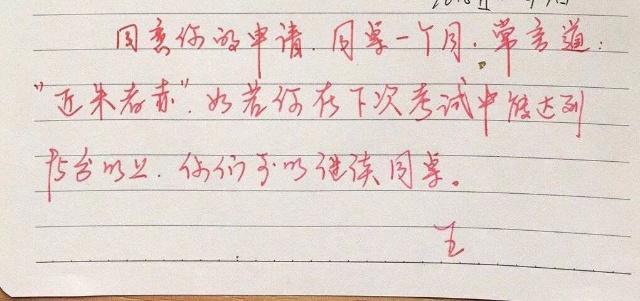 同意你的申请.同桌一个月.常言道:
"近朱者赤".如若你在下次考试中能达到
75分以上.你们可以继续同桌。
王